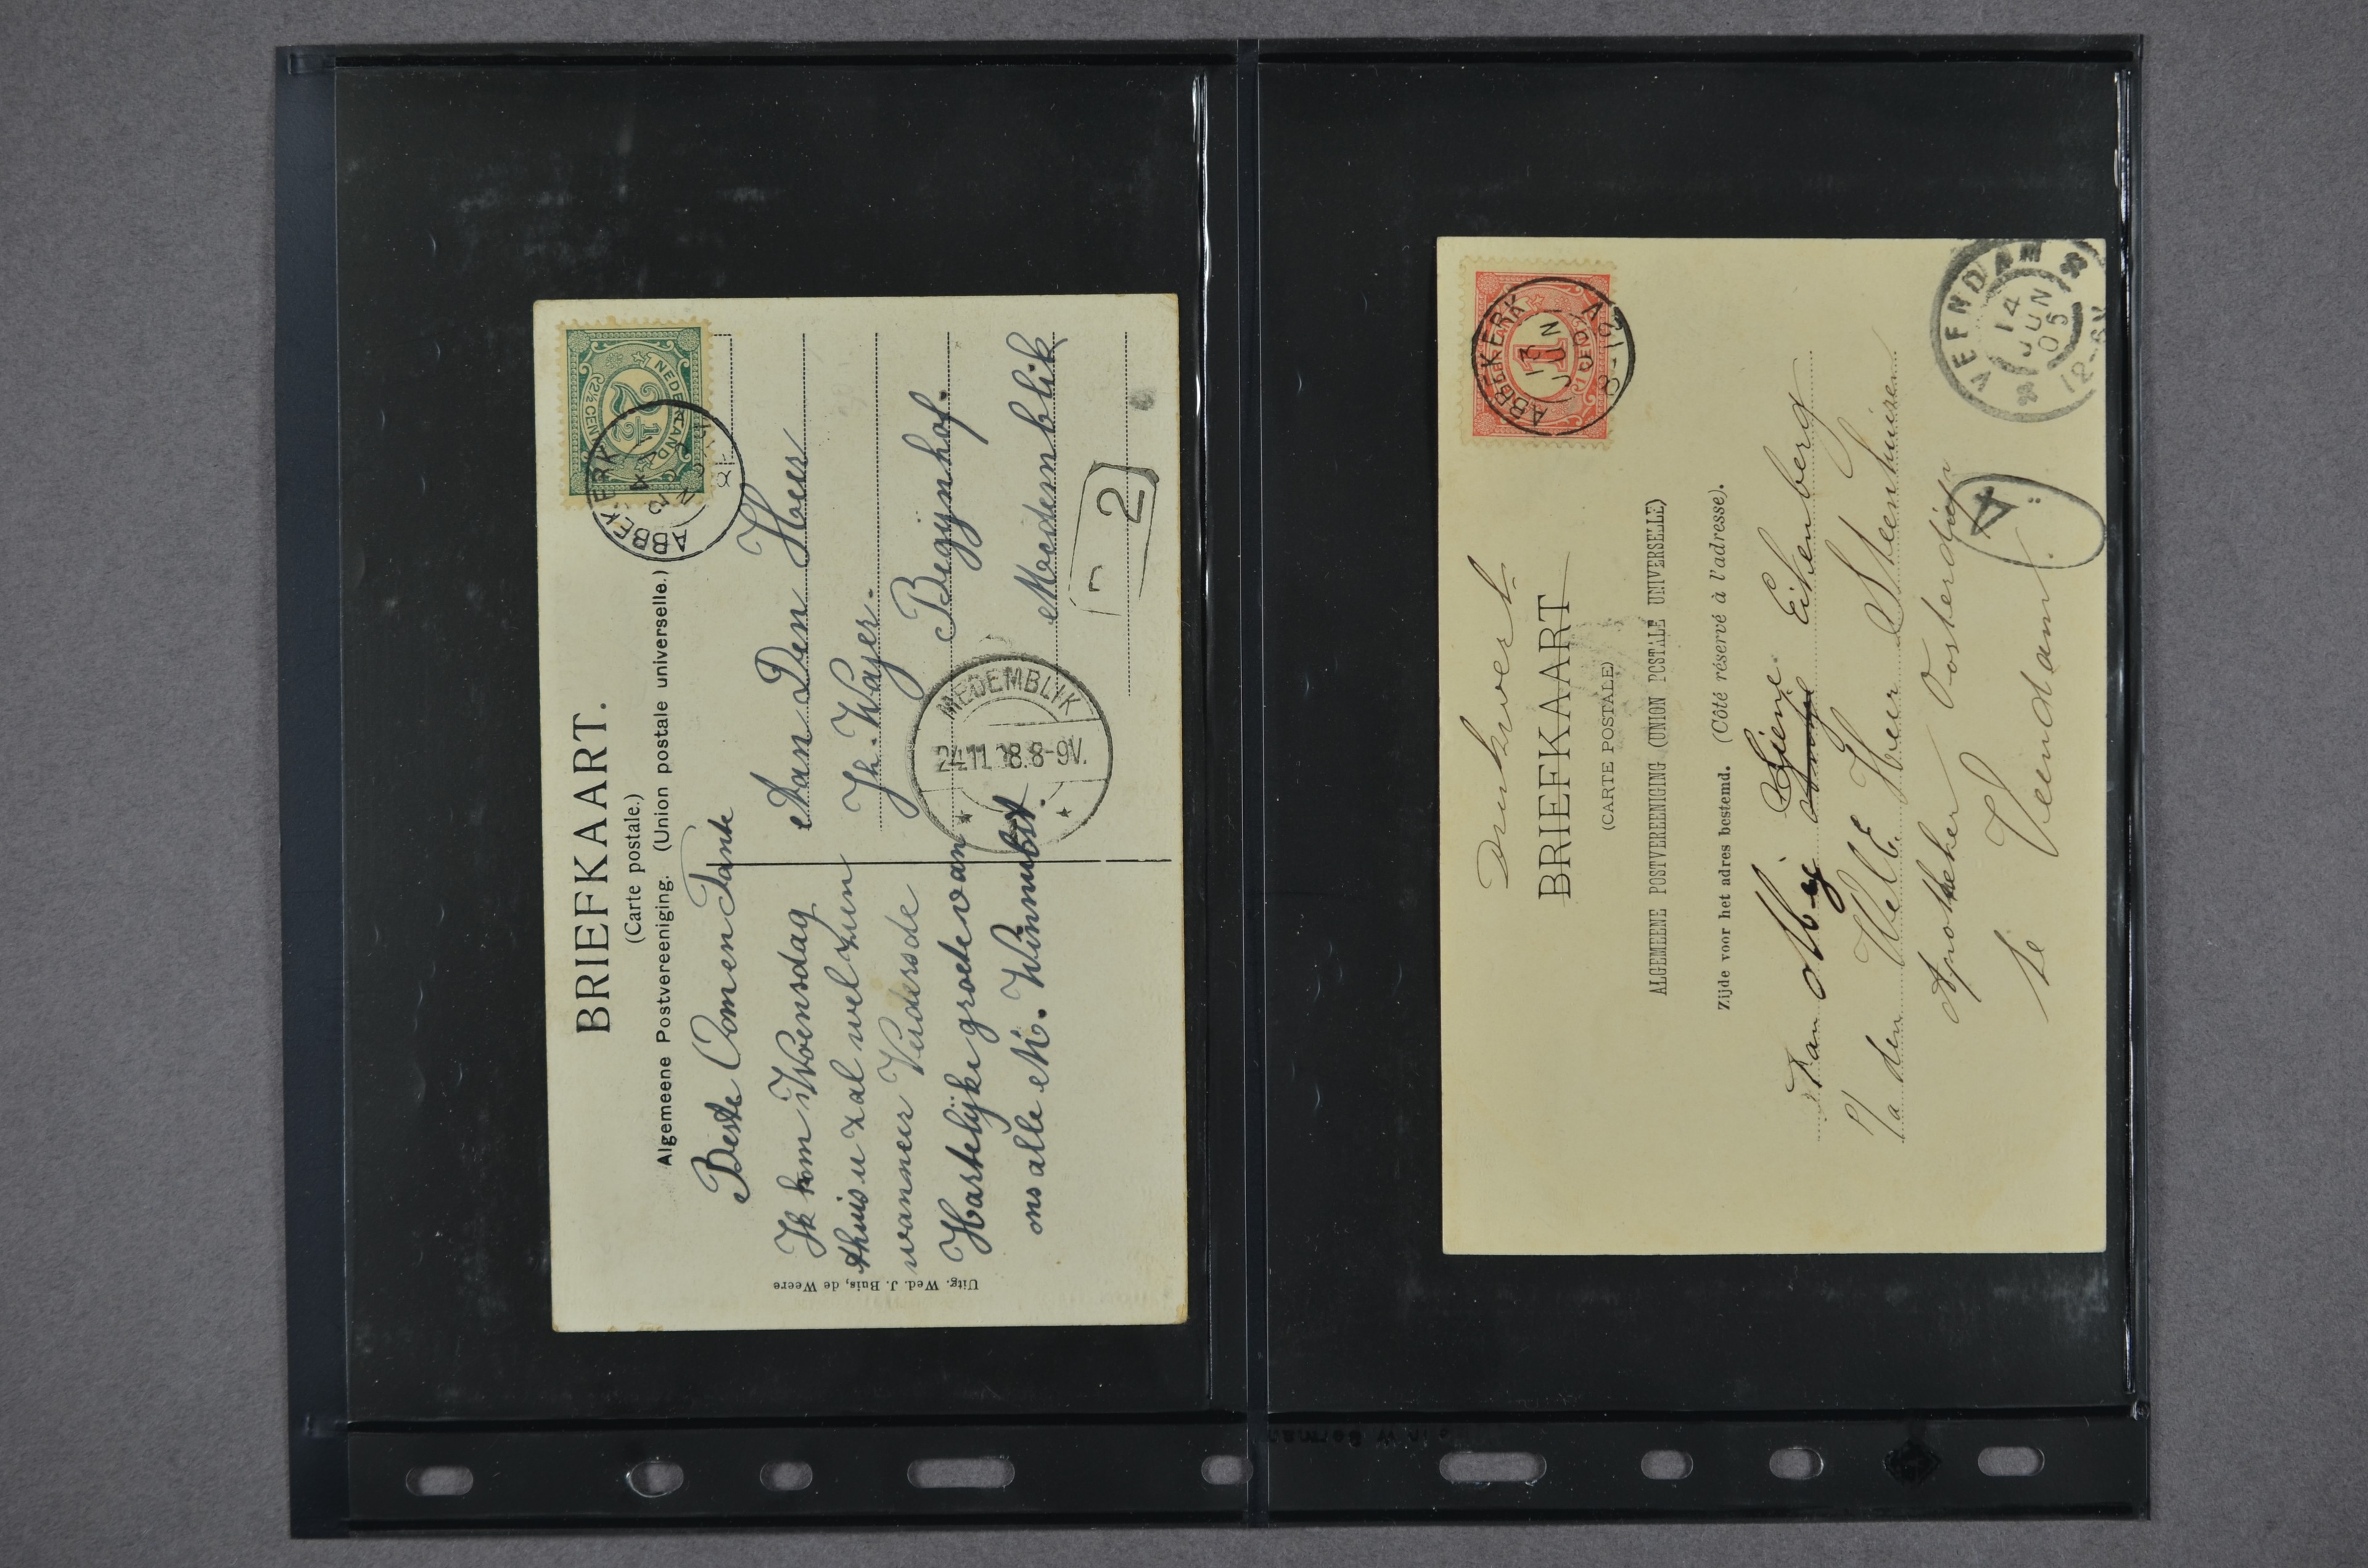 BRIEFKAART.
(Carte postale.)
Algemeene Postvereeniging. (Union postale universelle.)
NEDERLAND
2½
2½ CENT
ABBEKERK
Beste Oom en Tante
Ik kom Woensdag
thuis u zal wel zien
wanneer
Hartelijke groete van
ons alle M.
Aan Den Heer
Jb. Wajer.
Begijnhof.
Medemblik
MEDEMBLIK
24.11.18.8-9V.
2
Uitg. Wed. J. Buis, de Weere
Drukwerk
BRIEFKAART
(CARTE POSTALE)
ALGEMEENE POSTVEREENIGING (UNION POSTALE UNIVERSELLE)
Zijde voor het adres bestemd. (Côté réservé à l'adresse).
1
ABBEKERK
13
JUN
05
8-12V
Aan Mej Eikenberg
p/a den WelE Heer Steenhuizen
Apotheker Oosterdiep
te Veendam.
VEENDAM
14
JUN
05
12-6V
4